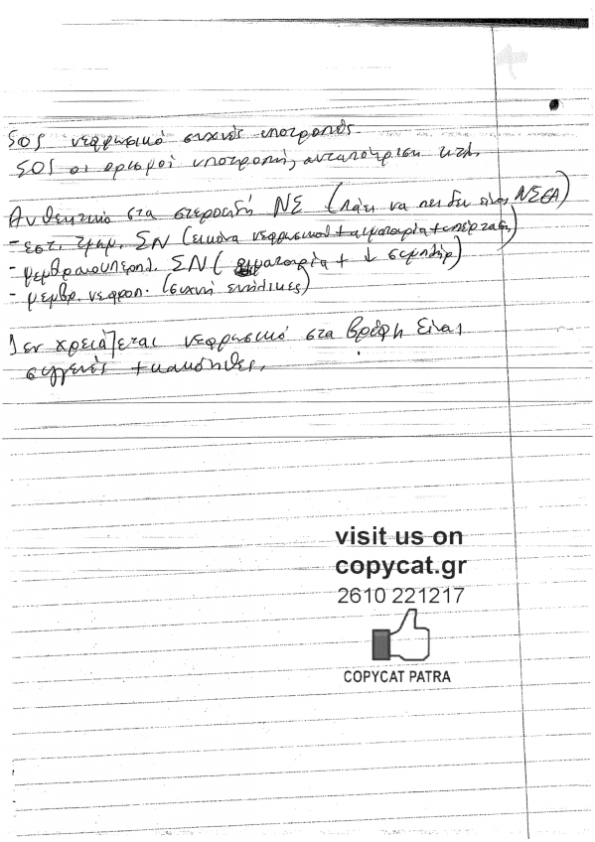 SOS νεφρωσικό συχνές υποτροπές
SOS οι ορισμοί υποτροπής, ανταπόκριση κτλ.
Ανθεκτικό στα στεροειδή ΝΣ (πάει να πει δεν είναι ΝΣΕΑ)
- εστ. τμημ. ΣΝ (εικόνα νεφρωσικού + αιματουρία + υπέρταση)
- μεμβρανοϋπερπλ. ΣΝ (αιματουρία + ↓ συμπλήρ)
- μεμβρ. νεφροπ. (συχνή ενήλικες)
Δεν χρειάζεται νεφρωσικό στα βρέφη είναι
συγγενές + κακόηθες.
visit us on
copycat.gr
2610 221217
COPYCAT PATRA